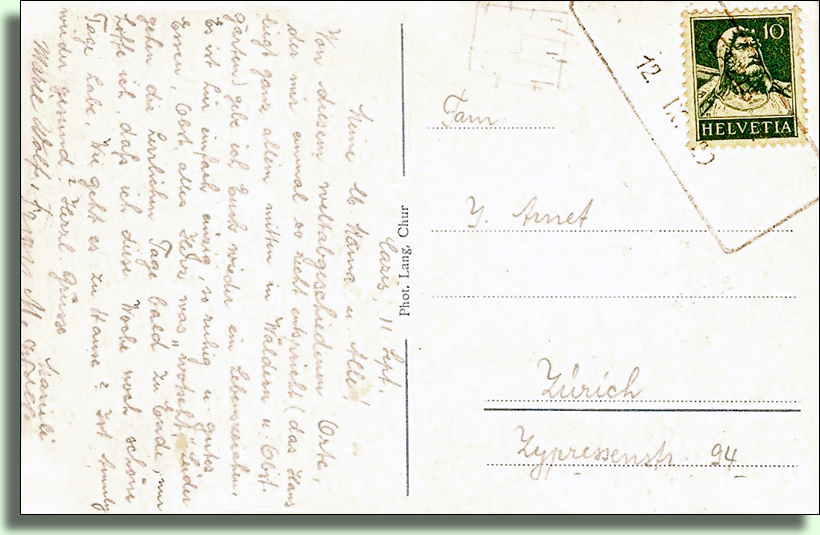 Cazis, 11 Sept.
Meine lb Mama u. Alle!
Von diesem weltabgeschiedenen Orte,
der mir einmal so recht entspricht (das Haus
liegt ganz allein mitten in Wäldern u. Obst-
gärten) gebe ich Euch wieder ein Lebenszeichen.
Es ist hier einfach einzig, so ruhig u. gutes
Essen, Obst, alles Herz was "wotsch". Leider
gehen die herrlichen Tage bald zu Ende, nur
hoffe ich, daß ich diese Woche noch schöne
Tage habe. Wie geht es zu Hause? Ist
wieder gesund? Herzl. Grüsse
Phot. Lang, Chur
HELVETIA
10
12. IX.
Fam.
J. Arnet
Zürich
Zypressenstr. 94